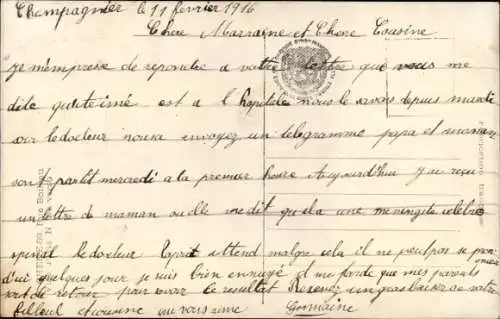 Champagnier le 11 février 1916
Chère Marraine et Chère Cousine
Je m'emprese de repondre a vottre lettre que vous me
dite qu'etimé est a l hopital nous le savons depuis mardi
soir le docteur nousa envoyez un telegramme papa et maman
sont partit mercredi a la premier heure Aujourd'hui j'ai reçu
un lettre de maman ou elle me dit qu'ela une meningite celebro
spinal le docteur attend malgre cela il ne peut pas se pronon
d'ui quelques jour je suis bien ennuyé il me tarde que mes parents
soit de retour pour avoir le resultat Recevez un gros baiser de votre
filleul et cousine que vous aime
Germaine